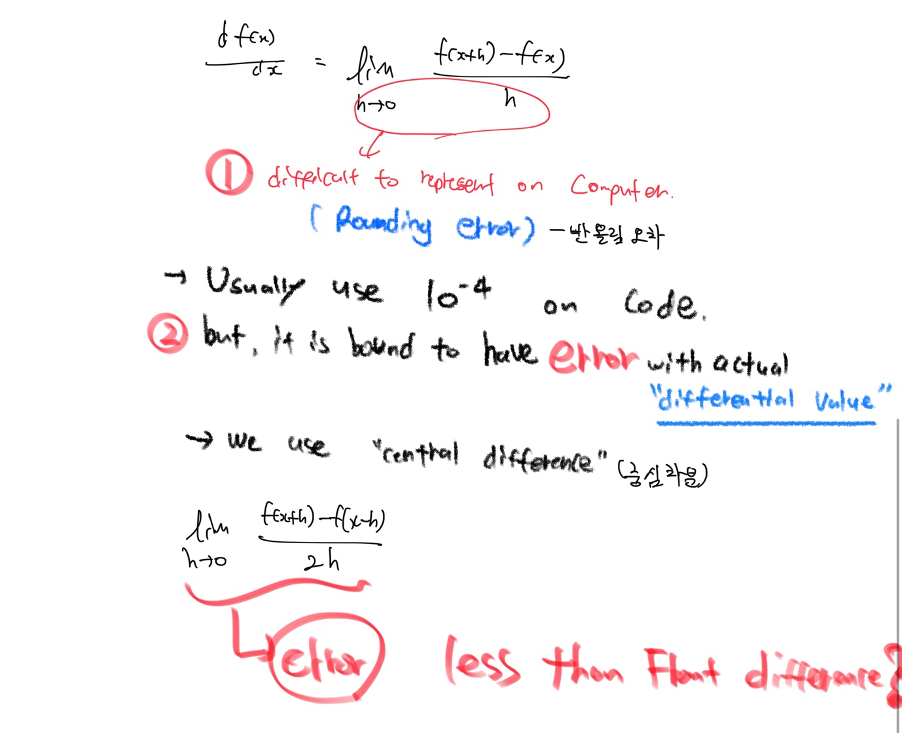 df(x)/dx = lim h→0 (f(x+h)-f(x))/h
① difficult to represent on Computer.
(Rounding error) - 반올림 오차
→ Usually use 10^-4 on Code.
② but, it is bound to have error with actual
"differential value"
→ we use "central difference" (중심차분)
lim h→0 (f(x+h)-f(x-h))/2h
error less than Front difference?